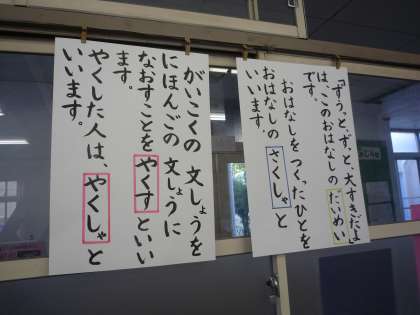 「ずうっと、ずっと、大すきだよ」
は、このおはなしの だいめい
です。
おはなしをつくったひとを
おはなしの さくしゃ と
いいます。
がいこくの 文しょうを
にほんごの 文しょうに
なおすことを やくす といい
ます。
やくした人は、やくしゃ と
いいます。